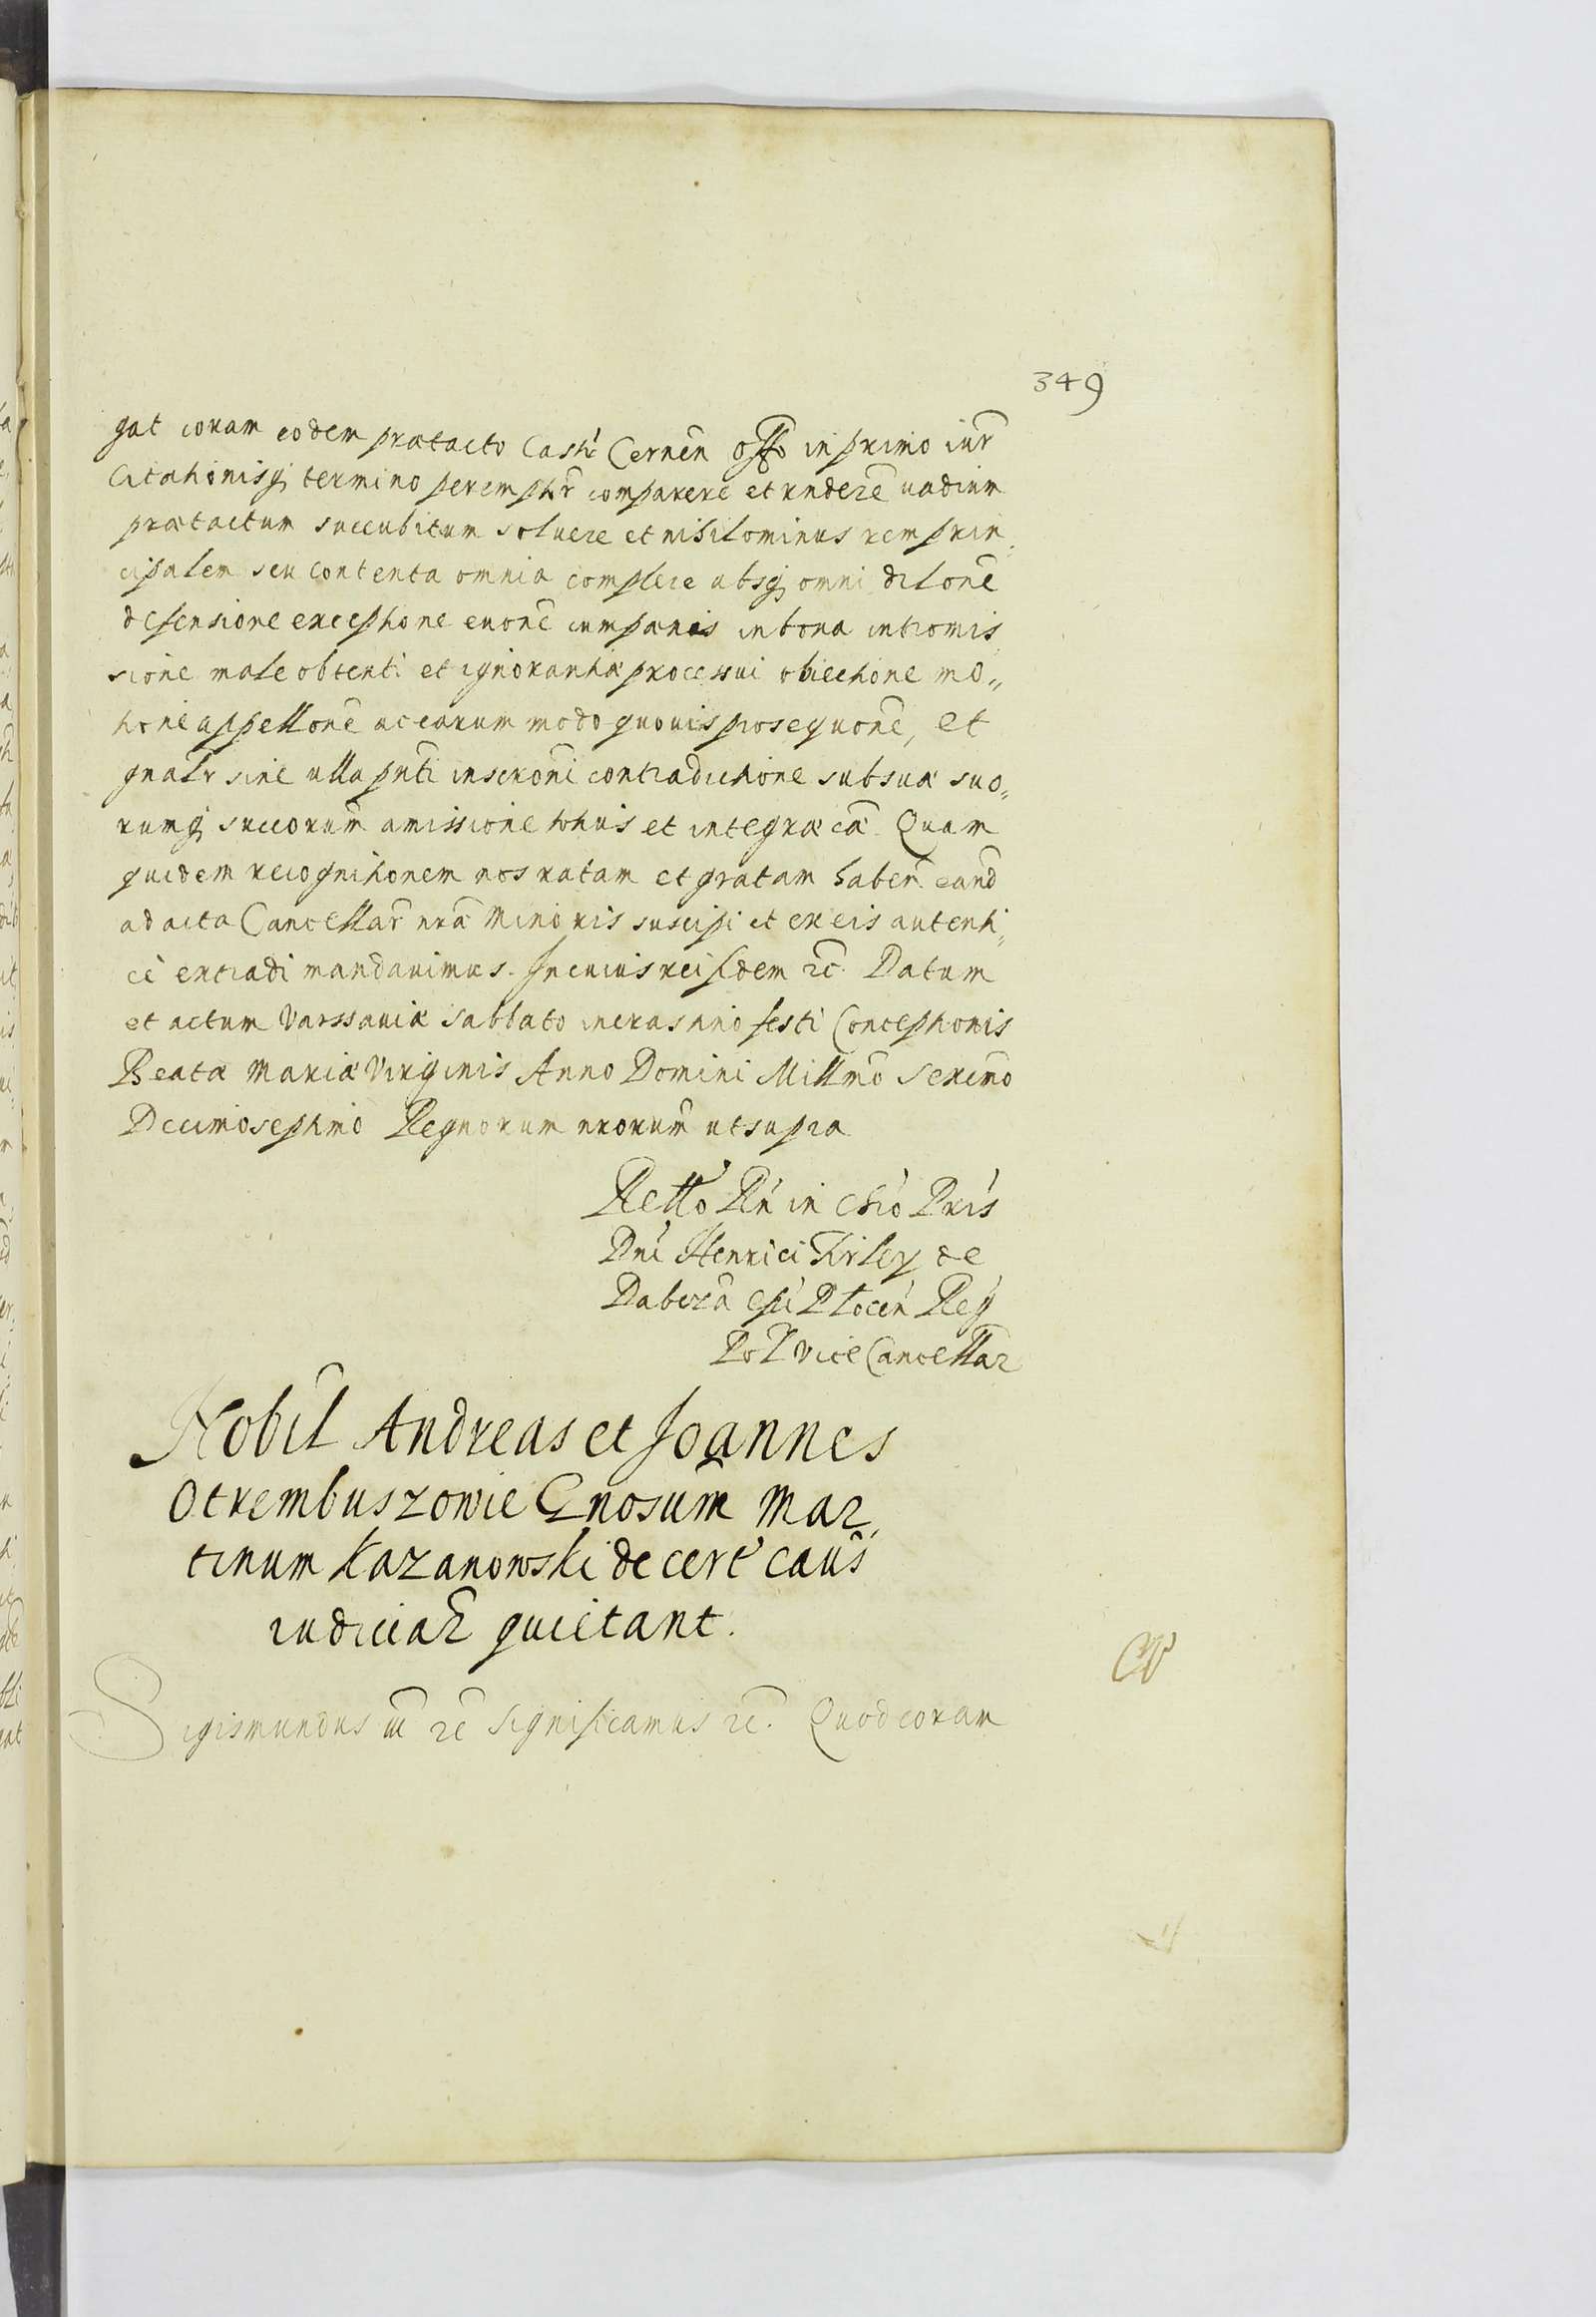 349
gat coram eodem prætacto Castri Cernen̄ offo in primo iur̄
Citationisq; termino peremptr̄ comparere et rn̄dere vadium
prætactum succubitum soluere et nihilominus rem prin,
cipalem seu contenta omnia complere absq; omni dilone
defensione exceptione euone cum pænis in bona intromis,
sione male obtenti et ignorantiæ processui obiectione mo„
tione appellone ac earum modo quouis prosequone, et
gnalr sine ulla pn̄ti inscroni contradictione sub suæ suo„
rumq; succorum amissione totius et integræ cæ. Quam
quidem recognitionem nos ratam et gratam haben. eand
ad acta Cancellar nr̄æ Minoris suscipi et ex eis autenti„
ce extradi mandauimus. In cuius rei fidem ꝛc. Datum
et actum Varssauiæ Sabbato in crastino festi Conceptionis
Beatæ Mariæ Virginis Anno Domini Millmo Sexcmo
Decimoseptimo Regnorum nrorum ut supra
Rello Rn̄ in Chro Pris
Dni Henrici Firley de
Dabroa Epi Plocen Reg
Pol Vice Cancellar
Nobil Andreas et Joannes
Otrembuszowie Gnosum Mar,
tinum Kazanowski de cert caus
iudiciar quietant.
Sigismundus III ꝛc Significamus ꝛc. Quod coram